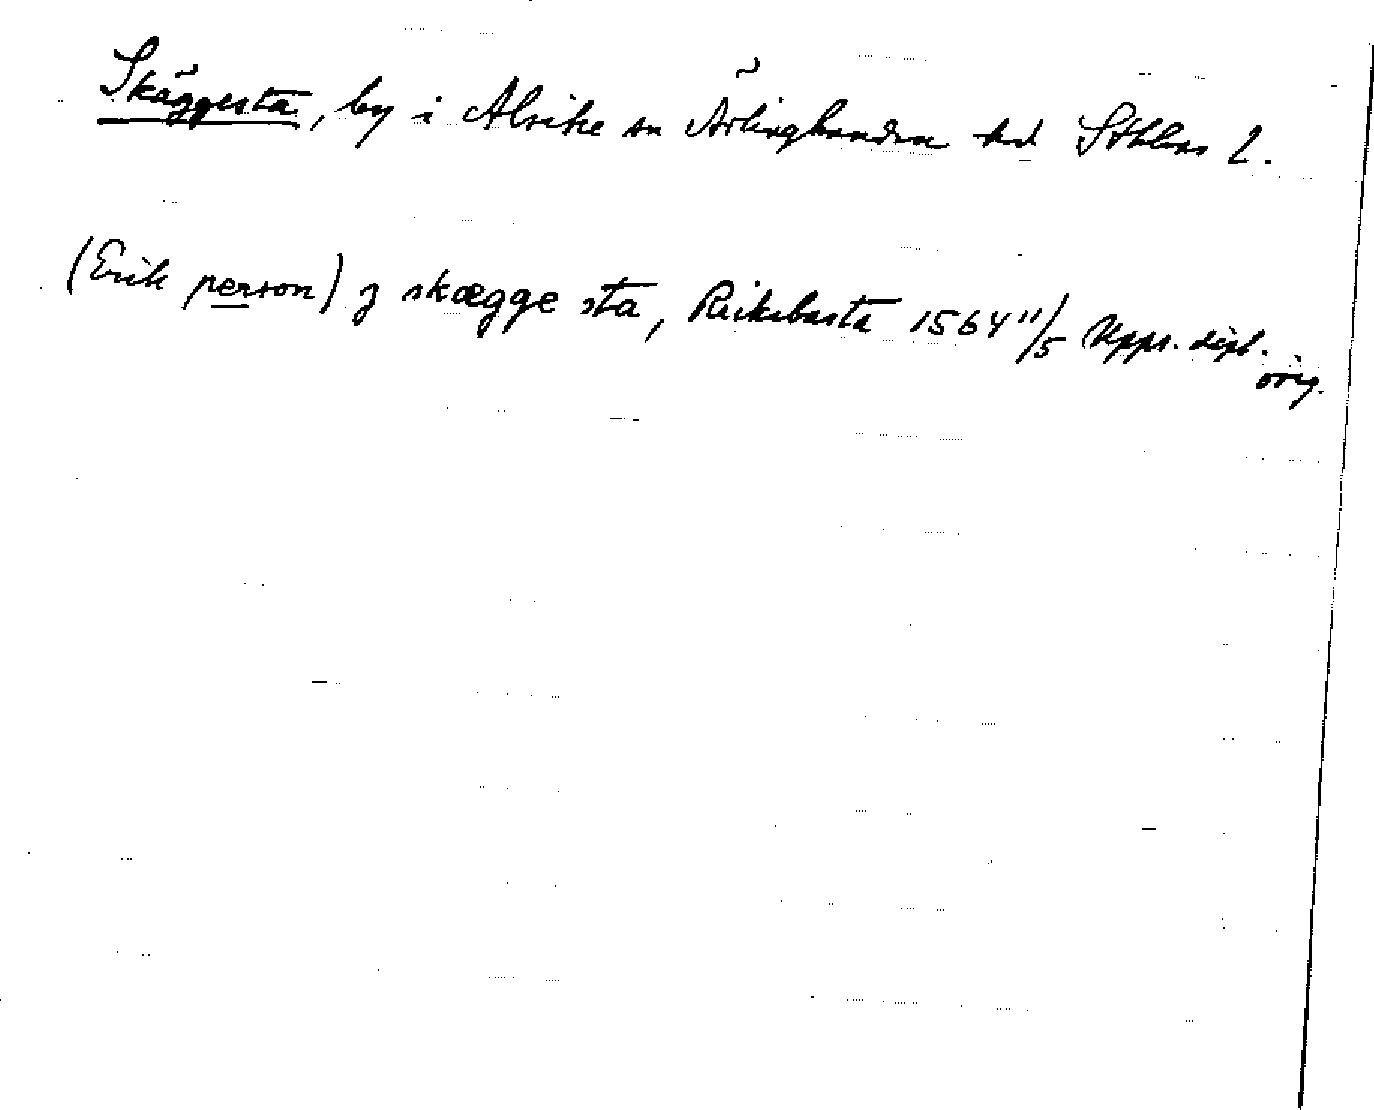 Skäggesta, by i Alsike sn Ärlinghundra hd Sthlms l.
(Erik person) j skægge sta, Rickebasta 1564 11/5 Upps. dipl.
orig.